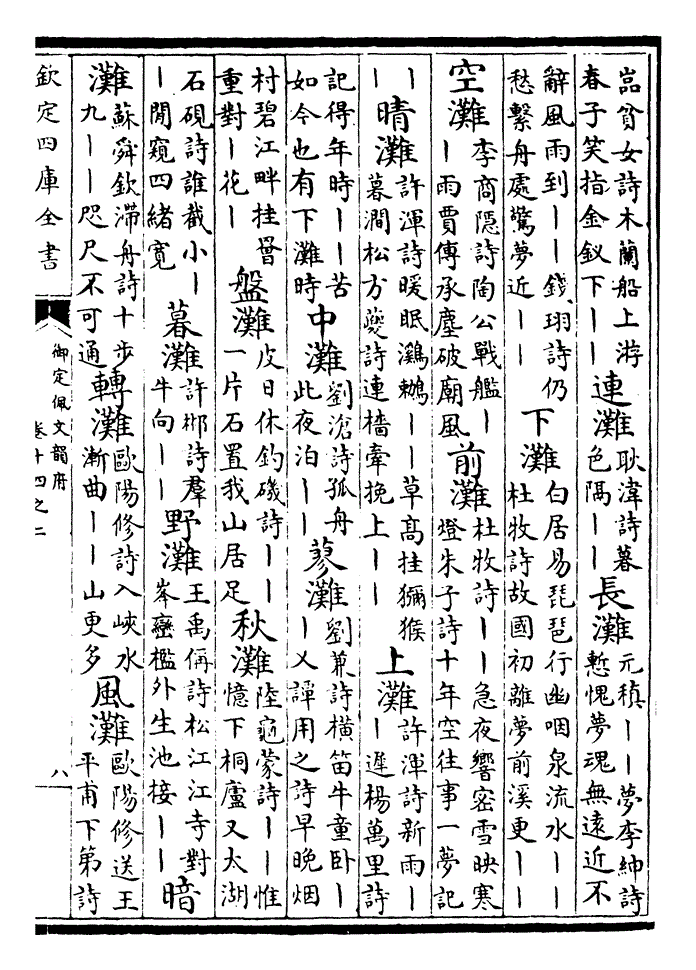 嵓貧女詩木蘭船上游
春子笑指金釵下——
連灘
耿湋詩暮
色隅——
長灘
元稹——夢李紳詩
慙愧夢魂無遠近不
辭風雨到——錢珝詩仍
愁繫舟處驚夢近——
下灘
白居易琵琶行幽咽泉流水——
杜牧詩故國初離夢前溪更——
空灘
李商隱詩陶公戰艦—
—雨賈傅承塵破廟風
前灘
杜牧詩——急夜響密雪映寒
燈朱子詩十年空往事一夢記
—
—
晴灘
許渾詩暖眠鸂鶒——草高挂獼猴
暮澗松方夔詩連檣牽挽上——
上灘
許渾詩新雨—
—遲楊萬里詩
記得年時——苦
如今也有下灘時
中灘
劉滄詩孤舟
此夜泊——
蓼灘
劉兼詩橫笛牛童臥—
—乂譚用之詩早晚烟
村碧江畔挂罾
重對—花—
盤灘
皮日休釣磯詩——
一片石置我山居足
秋灘
陸龜蒙詩——惟
憶下桐廬又太湖
石硯詩誰截小—
—閒窺四緒寬
暮灘
許郴詩羣
牛向——
野灘
王禹偁詩松江江寺對
峯巒檻外生池接——
暗
灘
蘇舜欽滯舟詩十步
九——咫尺不可通
轉灘
歐陽修詩入峽水
漸曲——山更多
風灘
歐陽修送王
平甫下第詩
欽定四庫全書
御定佩文韻府
卷十四之二
八